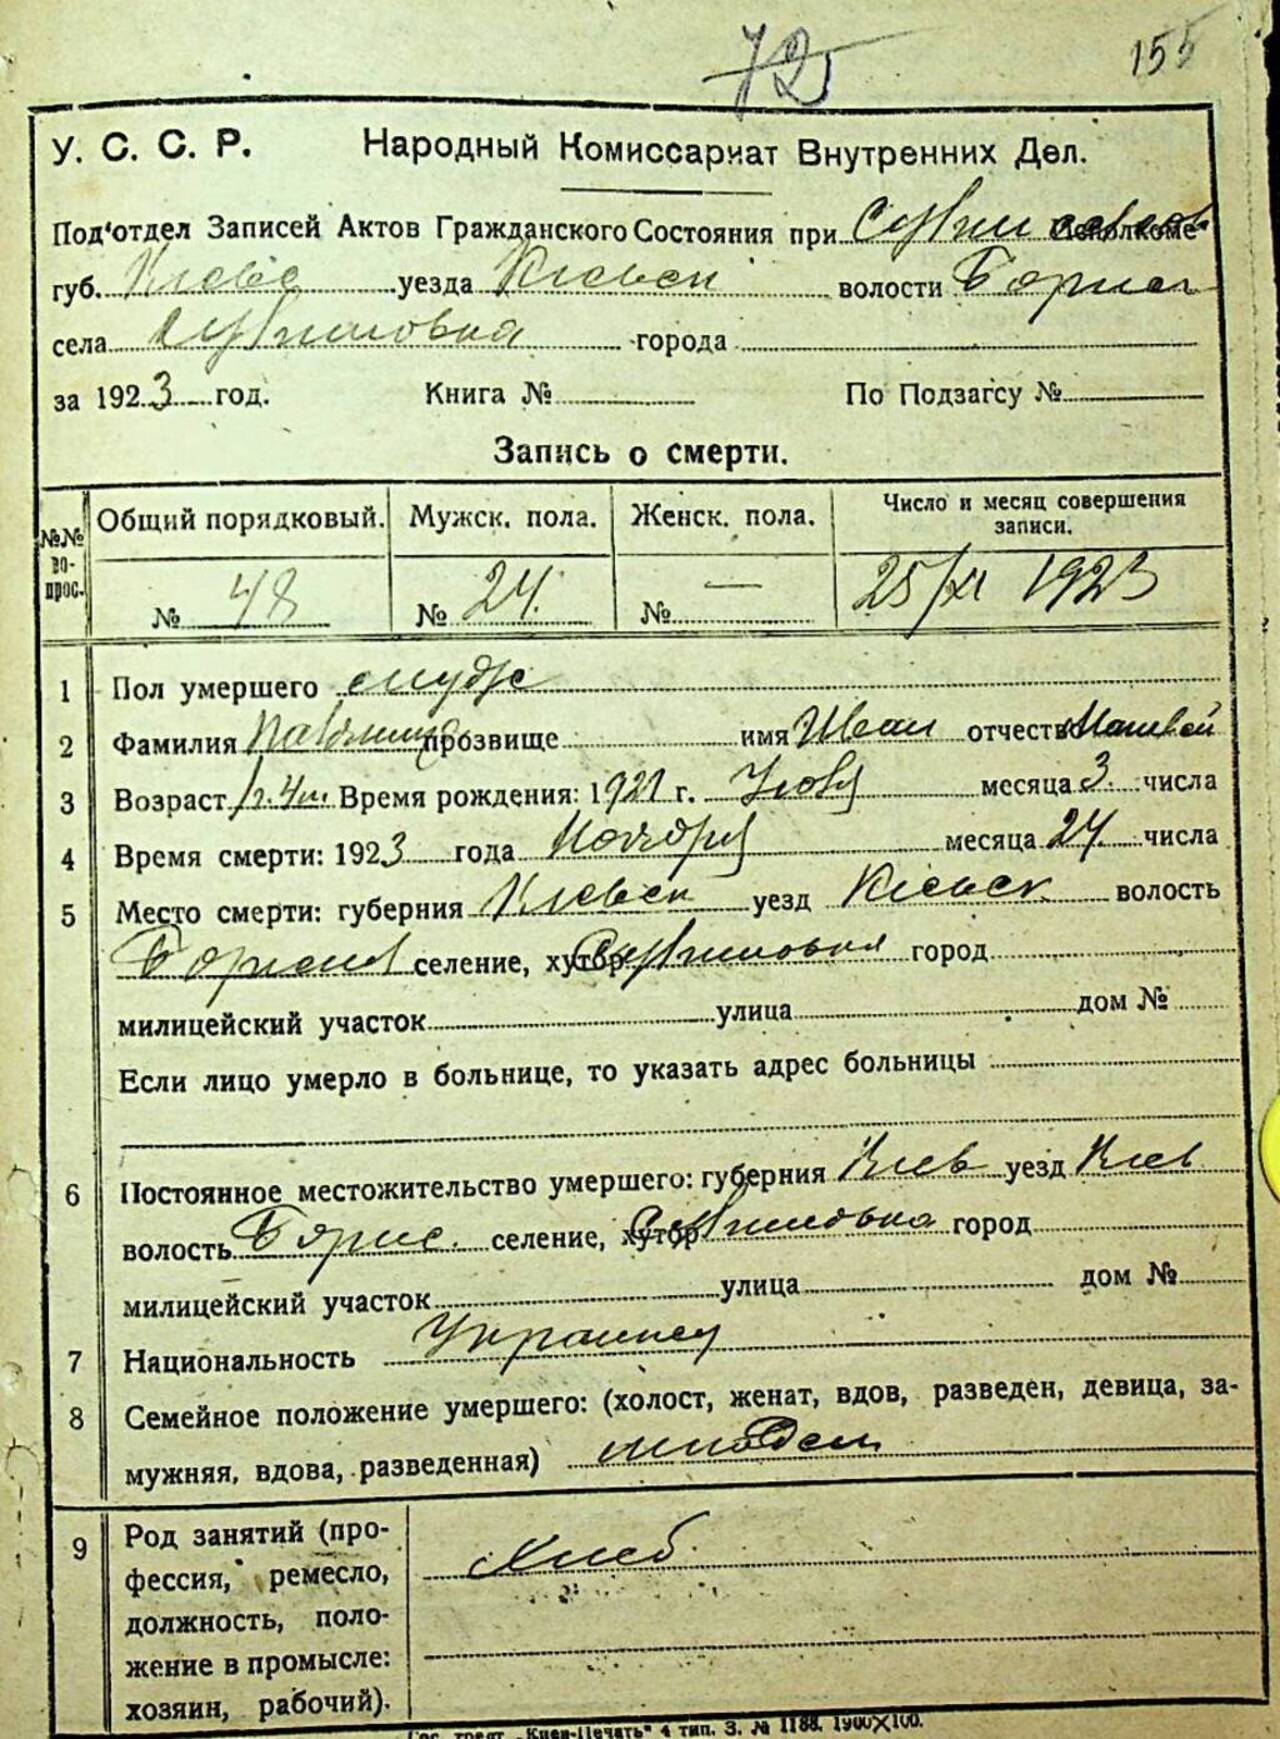 72
155
У. С. С. Р. Народный Комиссариат Внутренних Дел.
Под'отдел Записей Актов Гражданского Состояния при Исполкоме
губ. Киевс уезда Киевск волости Борисп
села города
за 1923 год. Книга № По Подзагсу №
Запись о смерти.
№№ во-прос. Общий порядковый. Мужск. пола. Женск. пола. Число и месяц совершения записи.
№ 48 № 24. № — 25/XI 1923
1 Пол умершего
2 Фамилия прозвище имя Иван отчество Матвей
3 Возраст 1 г. 4 м. Время рождения: 192 г. месяца 3. числа
4 Время смерти: 1923 года Ноября месяца 24. числа
5 Место смерти: губерния Киевск уезд Киевск волость
селение, хутор город
милицейский участок улица дом №
Если лицо умерло в больнице, то указать адрес больницы
6 Постоянное местожительство умершего: губерния Киев уезд Киев
волость Борис. селение, хутор город
милицейский участок улица дом №
7 Национальность Украинец
8 Семейное положение умершего: (холост, женат, вдов, разведен, девица, за-
мужняя, вдова, разведенная) младен
9 Род занятий (про- Хлеб
фессия, ремесло,
должность, поло-
жение в промысле:
хозяин, рабочий).
Гос. трест „Киев-Печать" 4 тип. З. № 1188. 1900×100.